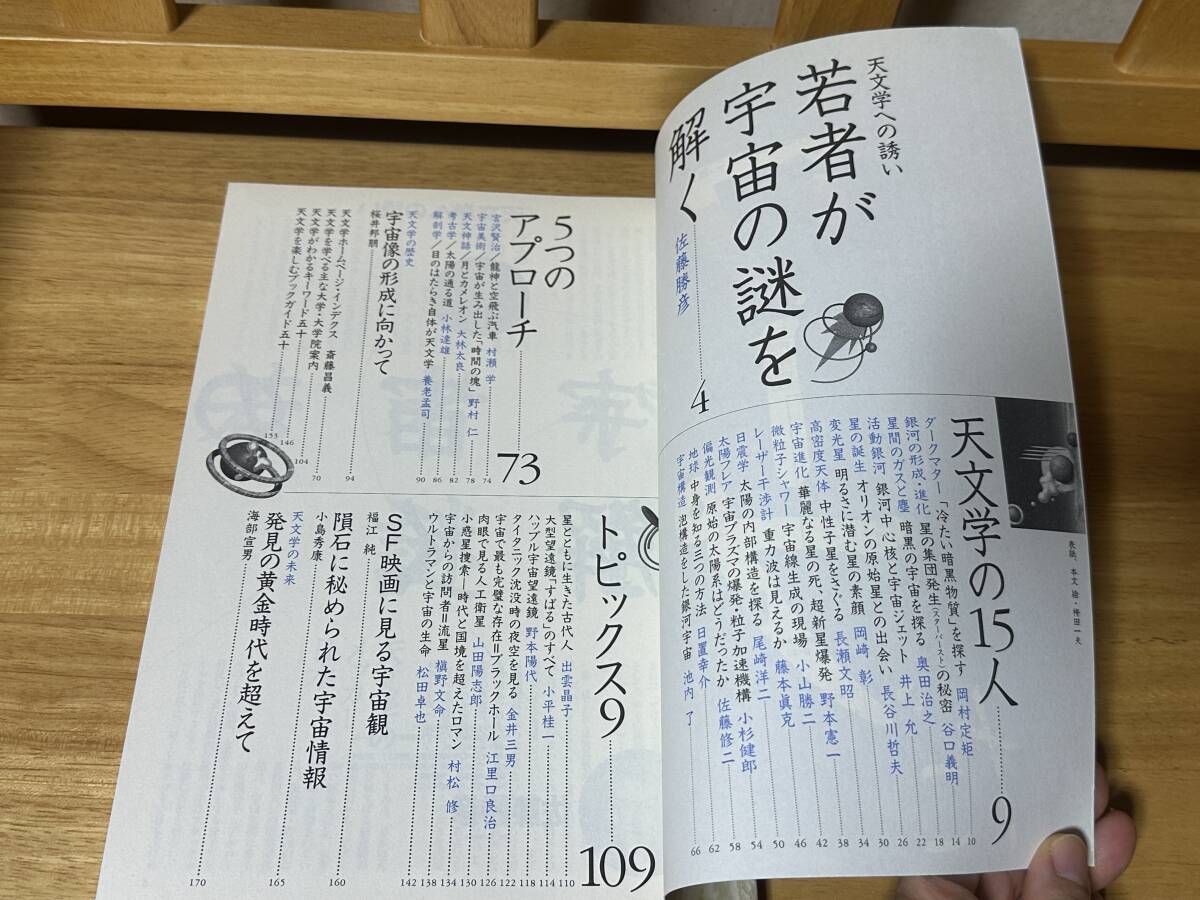 天文学への誘い
若者が
宇宙の謎を
解く 佐藤勝彦 4
表紙、本文 絵・稗田一夫
天文学の15人 9
ダークマター 「冷たい暗黒物質」を探す 岡村定矩 10
銀河の形成・進化 星の集団発生(スターバースト)の秘密 谷口義明 14
星間のガスと塵 暗黒の宇宙を探る 奥田治之 18
活動銀河 銀河中心核と宇宙ジェット 井上 允 22
星の誕生 オリオンの原始星との出会い 長谷川哲夫 26
変光星 明るさに潜む星の素顔 岡﨑 彰 30
高密度天体 中性子星をさぐる 長瀬文昭 34
宇宙進化 華麗なる星の死、超新星爆発 野本憲一 38
微粒子シャワー 宇宙線生成の現場 小山勝二 42
レーザー干渉計 重力波は見えるか 藤本眞克 46
日震学 太陽の内部構造を探る 尾崎洋二 50
太陽フレア 宇宙プラズマの爆発・粒子加速機構 小杉健郎 54
偏光観測 原始の太陽系はどうだったか 佐藤修二 58
地球 中身を知る三つの方法 日置幸介 62
宇宙構造 泡構造をした銀河宇宙 池内 了 66
5つの
アプローチ 73
宮沢賢治/龍神と空飛ぶ汽車 村瀬 学 74
宇宙美術/宇宙が生み出した「時間の塊」 野村 仁 78
天文神話/月とカメレオン 大林太良 82
考古学/太陽の通る道 小林達雄 86
解剖学/目のはたらき自体が天文学 養老孟司 90
天文学の歴史
宇宙像の形成に向かって
桜井邦朋 94
天文学ホームページ・インデクス 斎藤昌義 70
天文学を学べる主な大学・大学院案内 104
天文学がわかるキーワード五十 146
天文学を楽しむブックガイド五十 153
トピックス9 109
星とともに生きた古代人 出雲晶子 110
大型望遠鏡「すばる」のすべて 小平桂一 114
ハッブル宇宙望遠鏡 野本陽代 118
タイタニック沈没時の夜空を見る 金井三男 122
宇宙で最も完璧な存在=ブラックホール 江里口良治 126
肉眼で見る人工衛星 山田陽志郎 130
小惑星捜索―時代と国境を超えたロマン 村松 修 134
宇宙からの訪問者=流星 槇野文命 138
ウルトラマンと宇宙の生命 松田卓也 142
SF映画に見る宇宙観
福江 純 160
隕石に秘められた宇宙情報
小島秀康 165
天文学の未来
発見の黄金時代を超えて
海部宣男 170